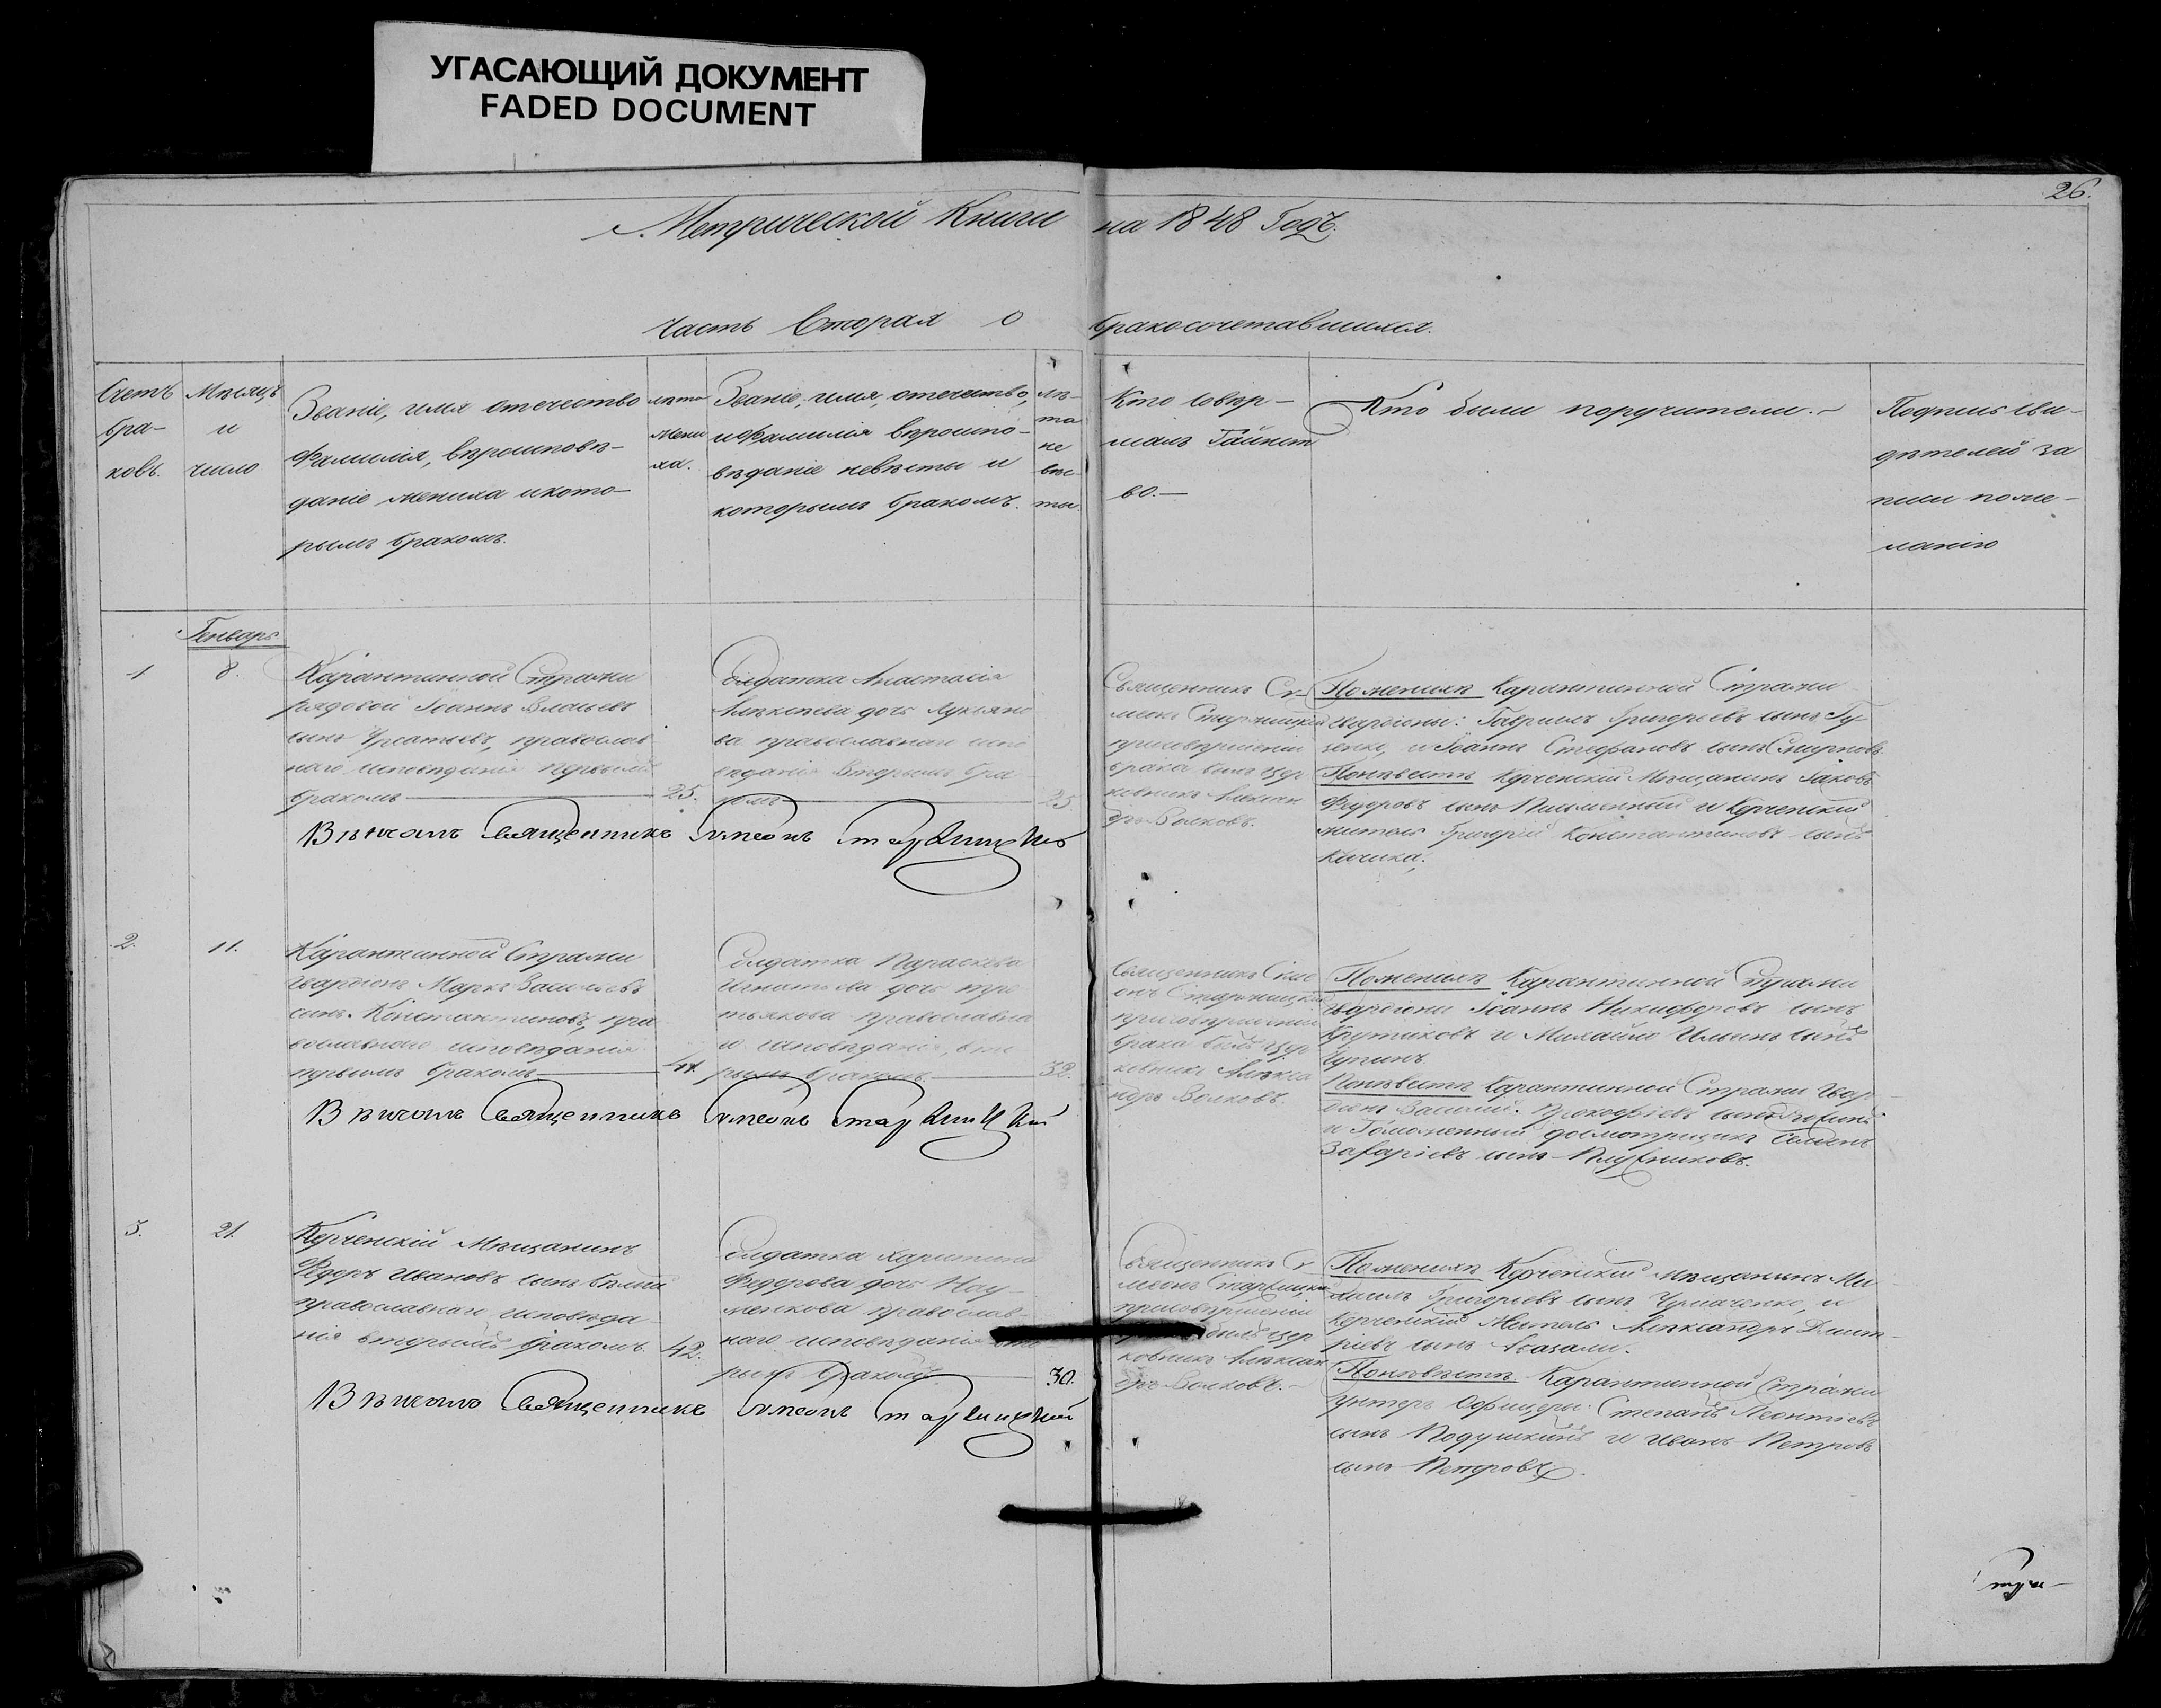 УГАСАЮЩИЙ ДОКУМЕНТ
FADED DOCUMENT
26.
Метрической Книги на 1848 Годъ.
Часть Вторая о бракосочетавшихся.
Счетъ
бра-
ковъ.
Мѣсяцъ
и
число
Званіе, имя отечество
Фамилія, вѣроисповѣ-
даніе жениха и кото-
рымъ бракомъ.
лѣта
жени
ха.
Званіе, имя, отечество,
и Фамилія вѣроиспо-
вѣданіе невѣсты и
которымъ бракомъ.
лѣ-
та
не
вѣс-
ты.
Кто совер-
шалъ Таинст
во.—
Кто были поручители.—
Подпись сви-
дѣтелей за
писи по же-
ланію
Генварь
1
8.
Карантинной Стражи
рядовой Іоаннъ
сынъ православ
наго исповѣданія первымъ
бракомъ
25.
Солдатка Анастасія
Алексѣева дочь Лукьяно
ва православнаго испо
вѣданія вторымъ бра
комъ
25.
Священникъ Си
меонъ Старжицкій
при совершеніи
брака былъ цер
ковникъ Алексан
дръ Волковъ.
По женихѣ Карантинной Стражи
гвардіоны: Гавріилъ Григорьевъ сынъ Гу
зенко, и Іоаннъ Стефановъ сынъ Смирновъ.
По невѣстѣ Керченскій Мѣщанинъ Іаковъ
Федоровъ сынъ Письменный и Керченскій
житель Григорій Константиновъ сынъ
Кичика.
Вѣнчалъ Священникъ Симеонъ Старжицкій
2.
11.
Карантинной Стражи
гвардіонъ Маркъ Васильевъ
сынъ Константиновъ, пра
вославнаго исповѣданія
первымъ бракомъ
41.
Солдатка Параскева
Игнатьева дочь Тре
тьякова православна
го исповѣданія, вто
рымъ бракомъ.
32.
Священникъ Симе
онъ Старжицкій
при совершеніи
брака былъ цер
ковникъ Алекса
ндръ Волковъ.
По женихѣ Карантинной Стражи
гвардіоны Іоаннъ Никифоровъ сынъ
Крутиковъ и Михайло Ильинъ сынъ
Чупинъ.
По невѣстѣ Карантинной Стражи Гвар
діонъ Василій Прокофіевъ сынъ
и Таможенный досмотрщикъ Семенъ
Захаріевъ сынъ Плужниковъ.
Вѣнчалъ Священникъ Симеонъ Старжицкій
3.
21.
Керченскій Мѣщанинъ
Федоръ Ивановъ сынъ Бѣлый
православнаго исповѣда
нія вторымъ бракомъ.
42.
Солдатка Харитина
Федорова дочь Нау
менкова православ-
наго исповѣданія вто
рымъ бракомъ
30.
Священникъ Си
меонъ Старжицкій
при совершеніи
былъ цер
ковникъ Алексан
дръ Волковъ.—
По женихѣ Керченскій мѣщанинъ Ми
хаилъ Григорьевъ сынъ Чумаченко, и
Керченскій Житель Александръ Дмит-
ріевъ сынъ
По невѣстѣ Карантинной Стражи
унтеръ Офицеры: Степанъ Леонтіевъ
сынъ Подушкинъ и Иванъ Петровъ
сынъ Петровъ.
Вѣнчалъ Священникъ Симеонъ Старжицкій